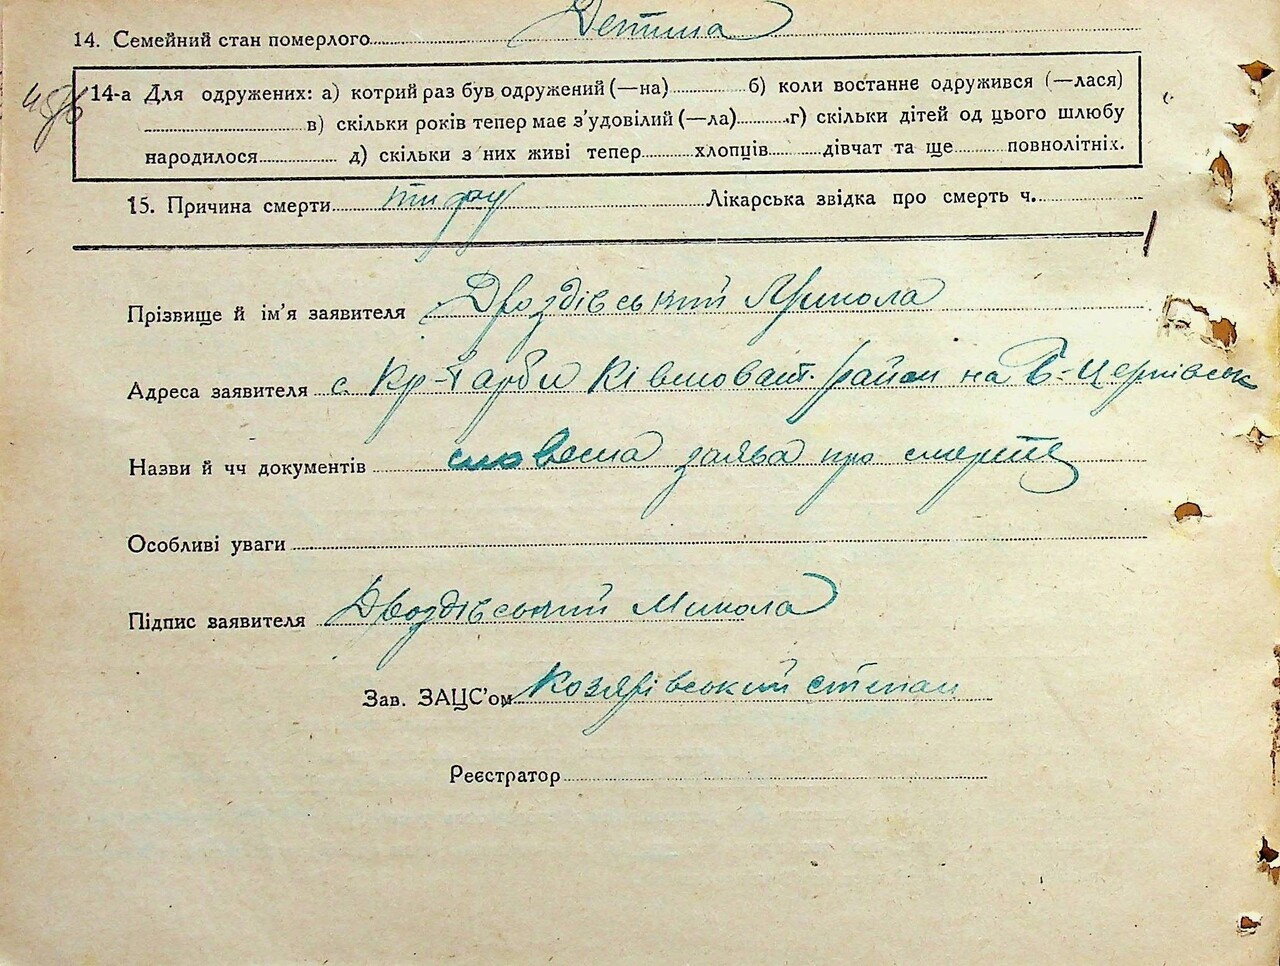 14. Семейний стан померлого Детина
14-а Для одружених: а) котрий раз був одружений (—на) б) коли востаннє одружився (—лася)
в) скільки років тепер має з’удовілий (—ла) г) скільки дітей од цього шлюбу
народилося д) скільки з них живі тепер хлопців дівчат та ще повнолітніх.
15. Причина смерти тифу Лікарська звідка про смерть ч.
Прізвище й ім’я заявителя Дроздівський Микола
Адреса заявителя с. район на Б-церківськ
Назви й чч документів словесна заява про смерть
Особливі уваги
Підпис заявителя Дроздівський Микола
Зав. ЗАЦС’ом Козярівський степан
Реєстратор